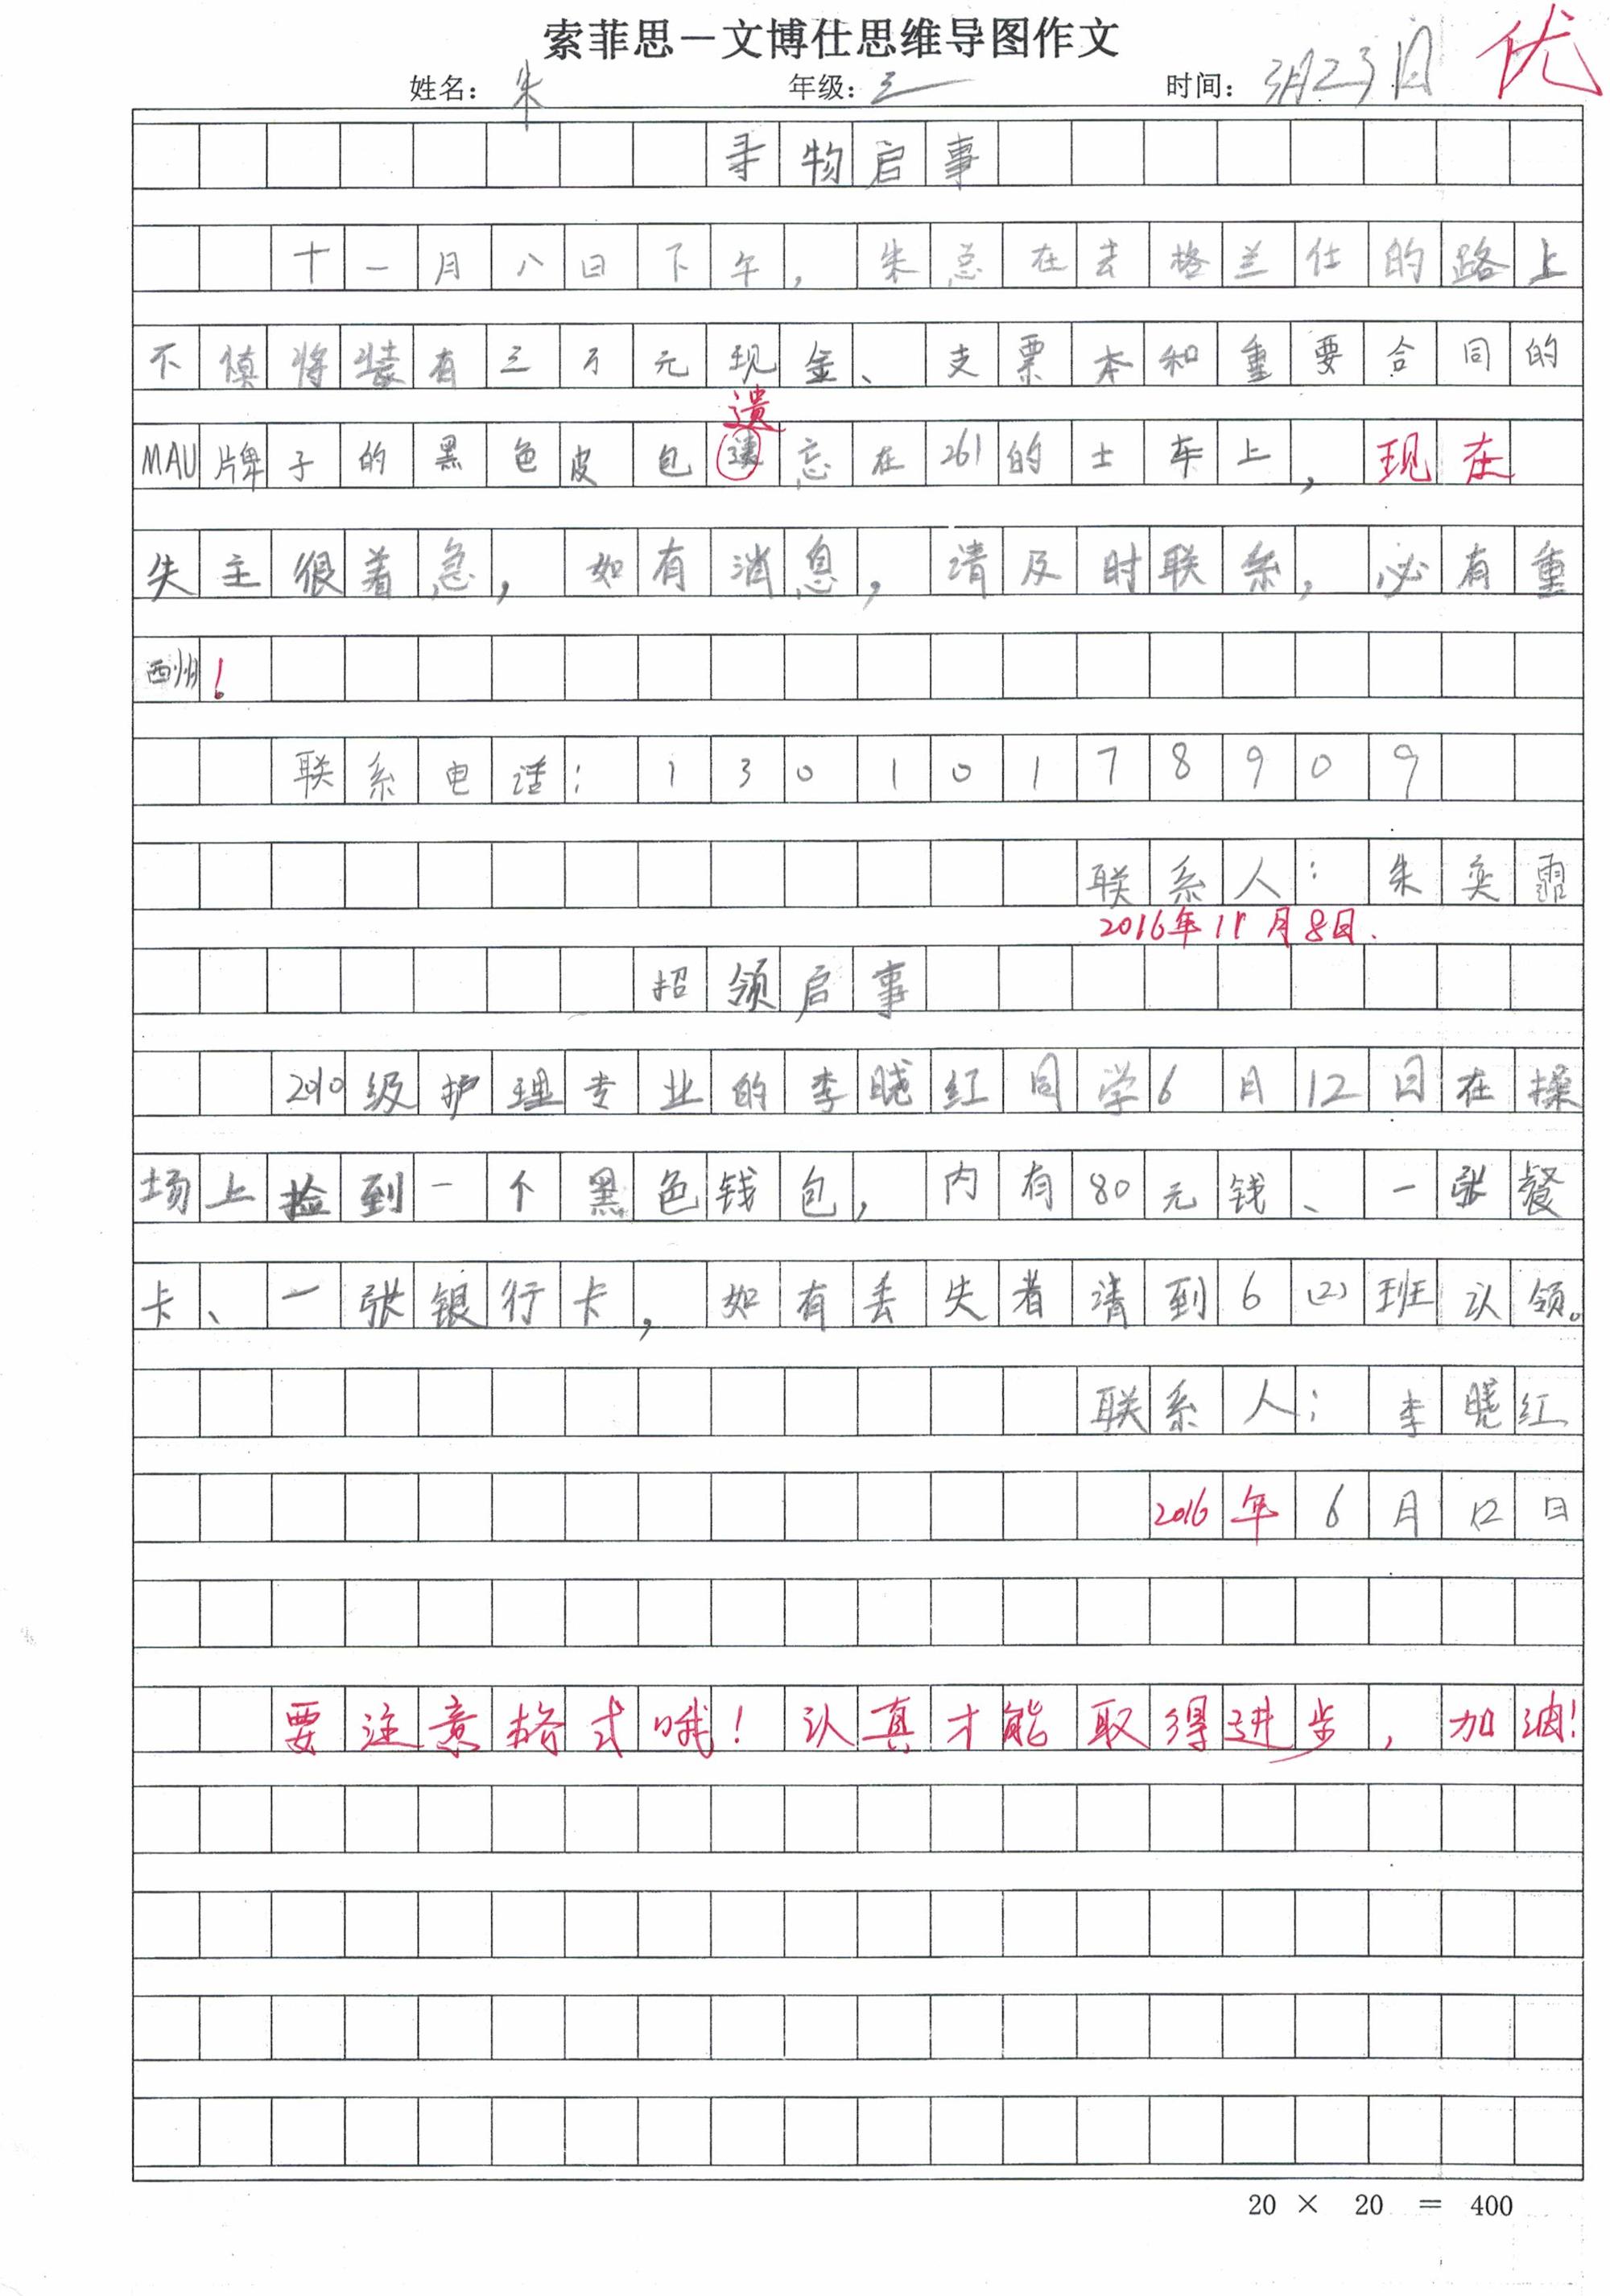 索菲思－文博仕思维导图作文
姓名：朱 年级：三 时间：3月23日 优
寻物启事
十一月八日下午，朱总在去格兰仕的路上
不慎将装有三万元现金、支票本和重要合同的
遗
MAU牌子的黑色皮包遗忘在261的士车上，现在
失主很着急，如有消息，请及时联系，必有重
酬！
联系电话：13010178909
联系人：朱奕霏
2016年11月8日.
招领启事
2010级护理专业的李晓红同学6月12日在操
场上捡到一个黑色钱包，内有80元钱、一张餐
卡、一张银行卡，如有丢失者请到6（2）班认领。
联系人：李晓红
2016年6月12日
要注意格式哦！认真才能取得进步，加油！
20 × 20 = 400